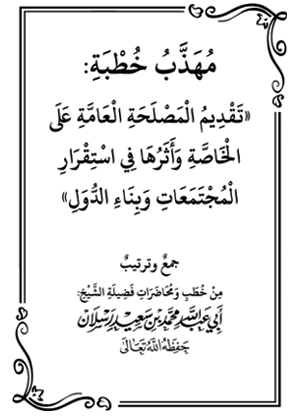 مُهَذَّبُ خُطْبَةِ:
«تَقْدِيمُ الْمَصْلَحَةِ الْعَامَّةِ عَلَى
الْخَاصَّةِ وَأَثَرُهَا فِي اسْتِقْرَارِ
الْمُجْتَمَعَاتِ وَبِنَاءِ الدُّوَلِ»
جمعُ وترتيبُ
مِنْ خُطَبِ وَمُحَاضَرَاتِ فَضِيلَةِ الشَّيْخِ:
أَبِي عَبْدِ اللَّهِ مُحَمَّدِ بْنِ سَعِيدِ رَسْلَان
حَفِظَهُ اللَّهُ تَعَالَى